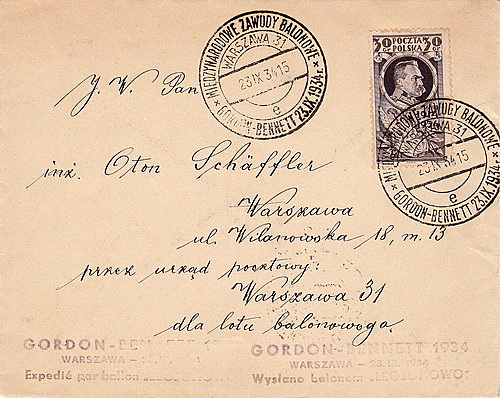 MIĘDZYNARODOWE ZAWODY BALONOWE
WARSZAWA 31
23 IX 34 15
e
* GORDON-BENNETT 23.IX.1934 r. *
30 POCZTA 30
GR POLSKA GR
MIĘDZYNARODOWE ZAWODY BALONOWE
WARSZAWA 31
23 IX 34 15
e
* GORDON-BENNETT 23.IX.1934 r. *
J. W. Pan
inż. Oton Schäffler
Warszawa
ul. Wilanowska 18, m. 13
przez urząd pocztowy:
Warszawa 31
dla lotu balonowego.
GORDON-BENNETT
WARSZAWA –
Expedié par ballon „LEGJONOWO"
GORDON-BENNETT 1934
WARSZAWA – 23.IX.1934
Wysłano balonem „LEGJONOWO"